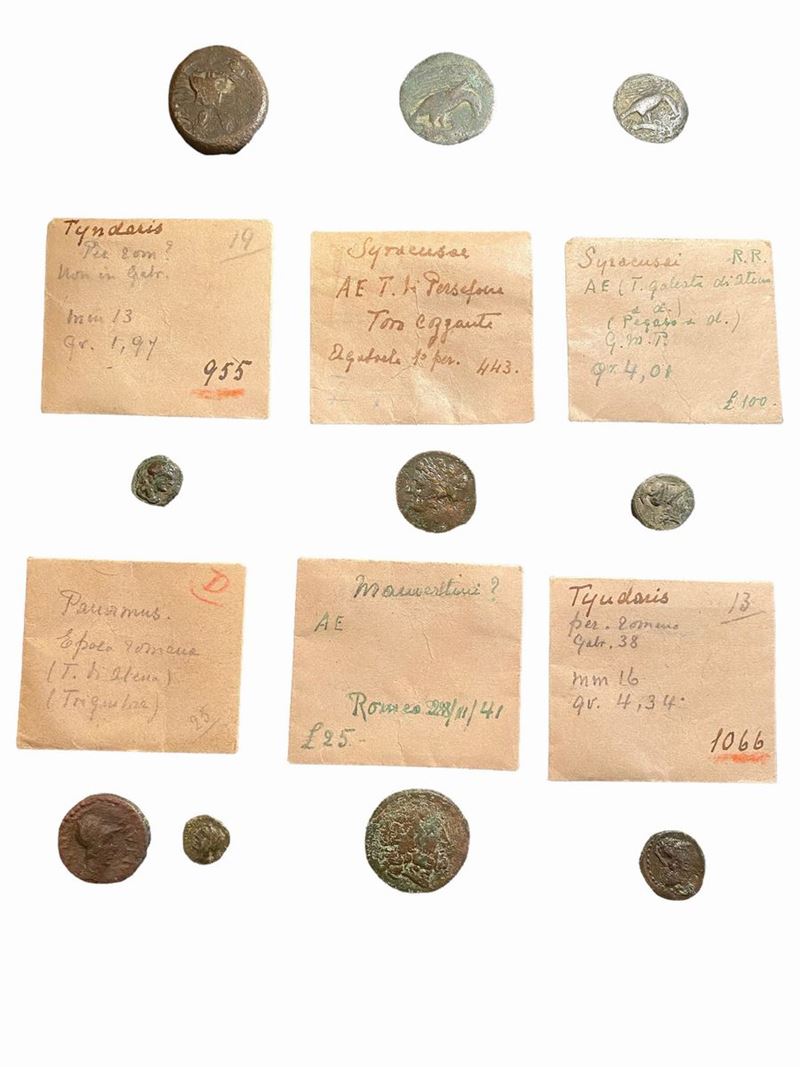 Tyndaris
19
Per rom?
Non in Gabr.
mm 13
gr. 1,97
955
Syracusae
AE T. di Persefone
Toro cozzante
1° per. 443.
Syracusai R.R.
AE (T. galeata di Atena
a d.)
(Pegaso a d.)
G.M.P.
gr 4,01
£100.
D
Panormus.
Epoca romana
(T. di Atena)
(Triquetra)
Mamertini?
AE
Romeo 28/11/41
£25.-
Tyndaris
13
per. romano
Gabr. 38
mm 16
gr. 4,34.
1066